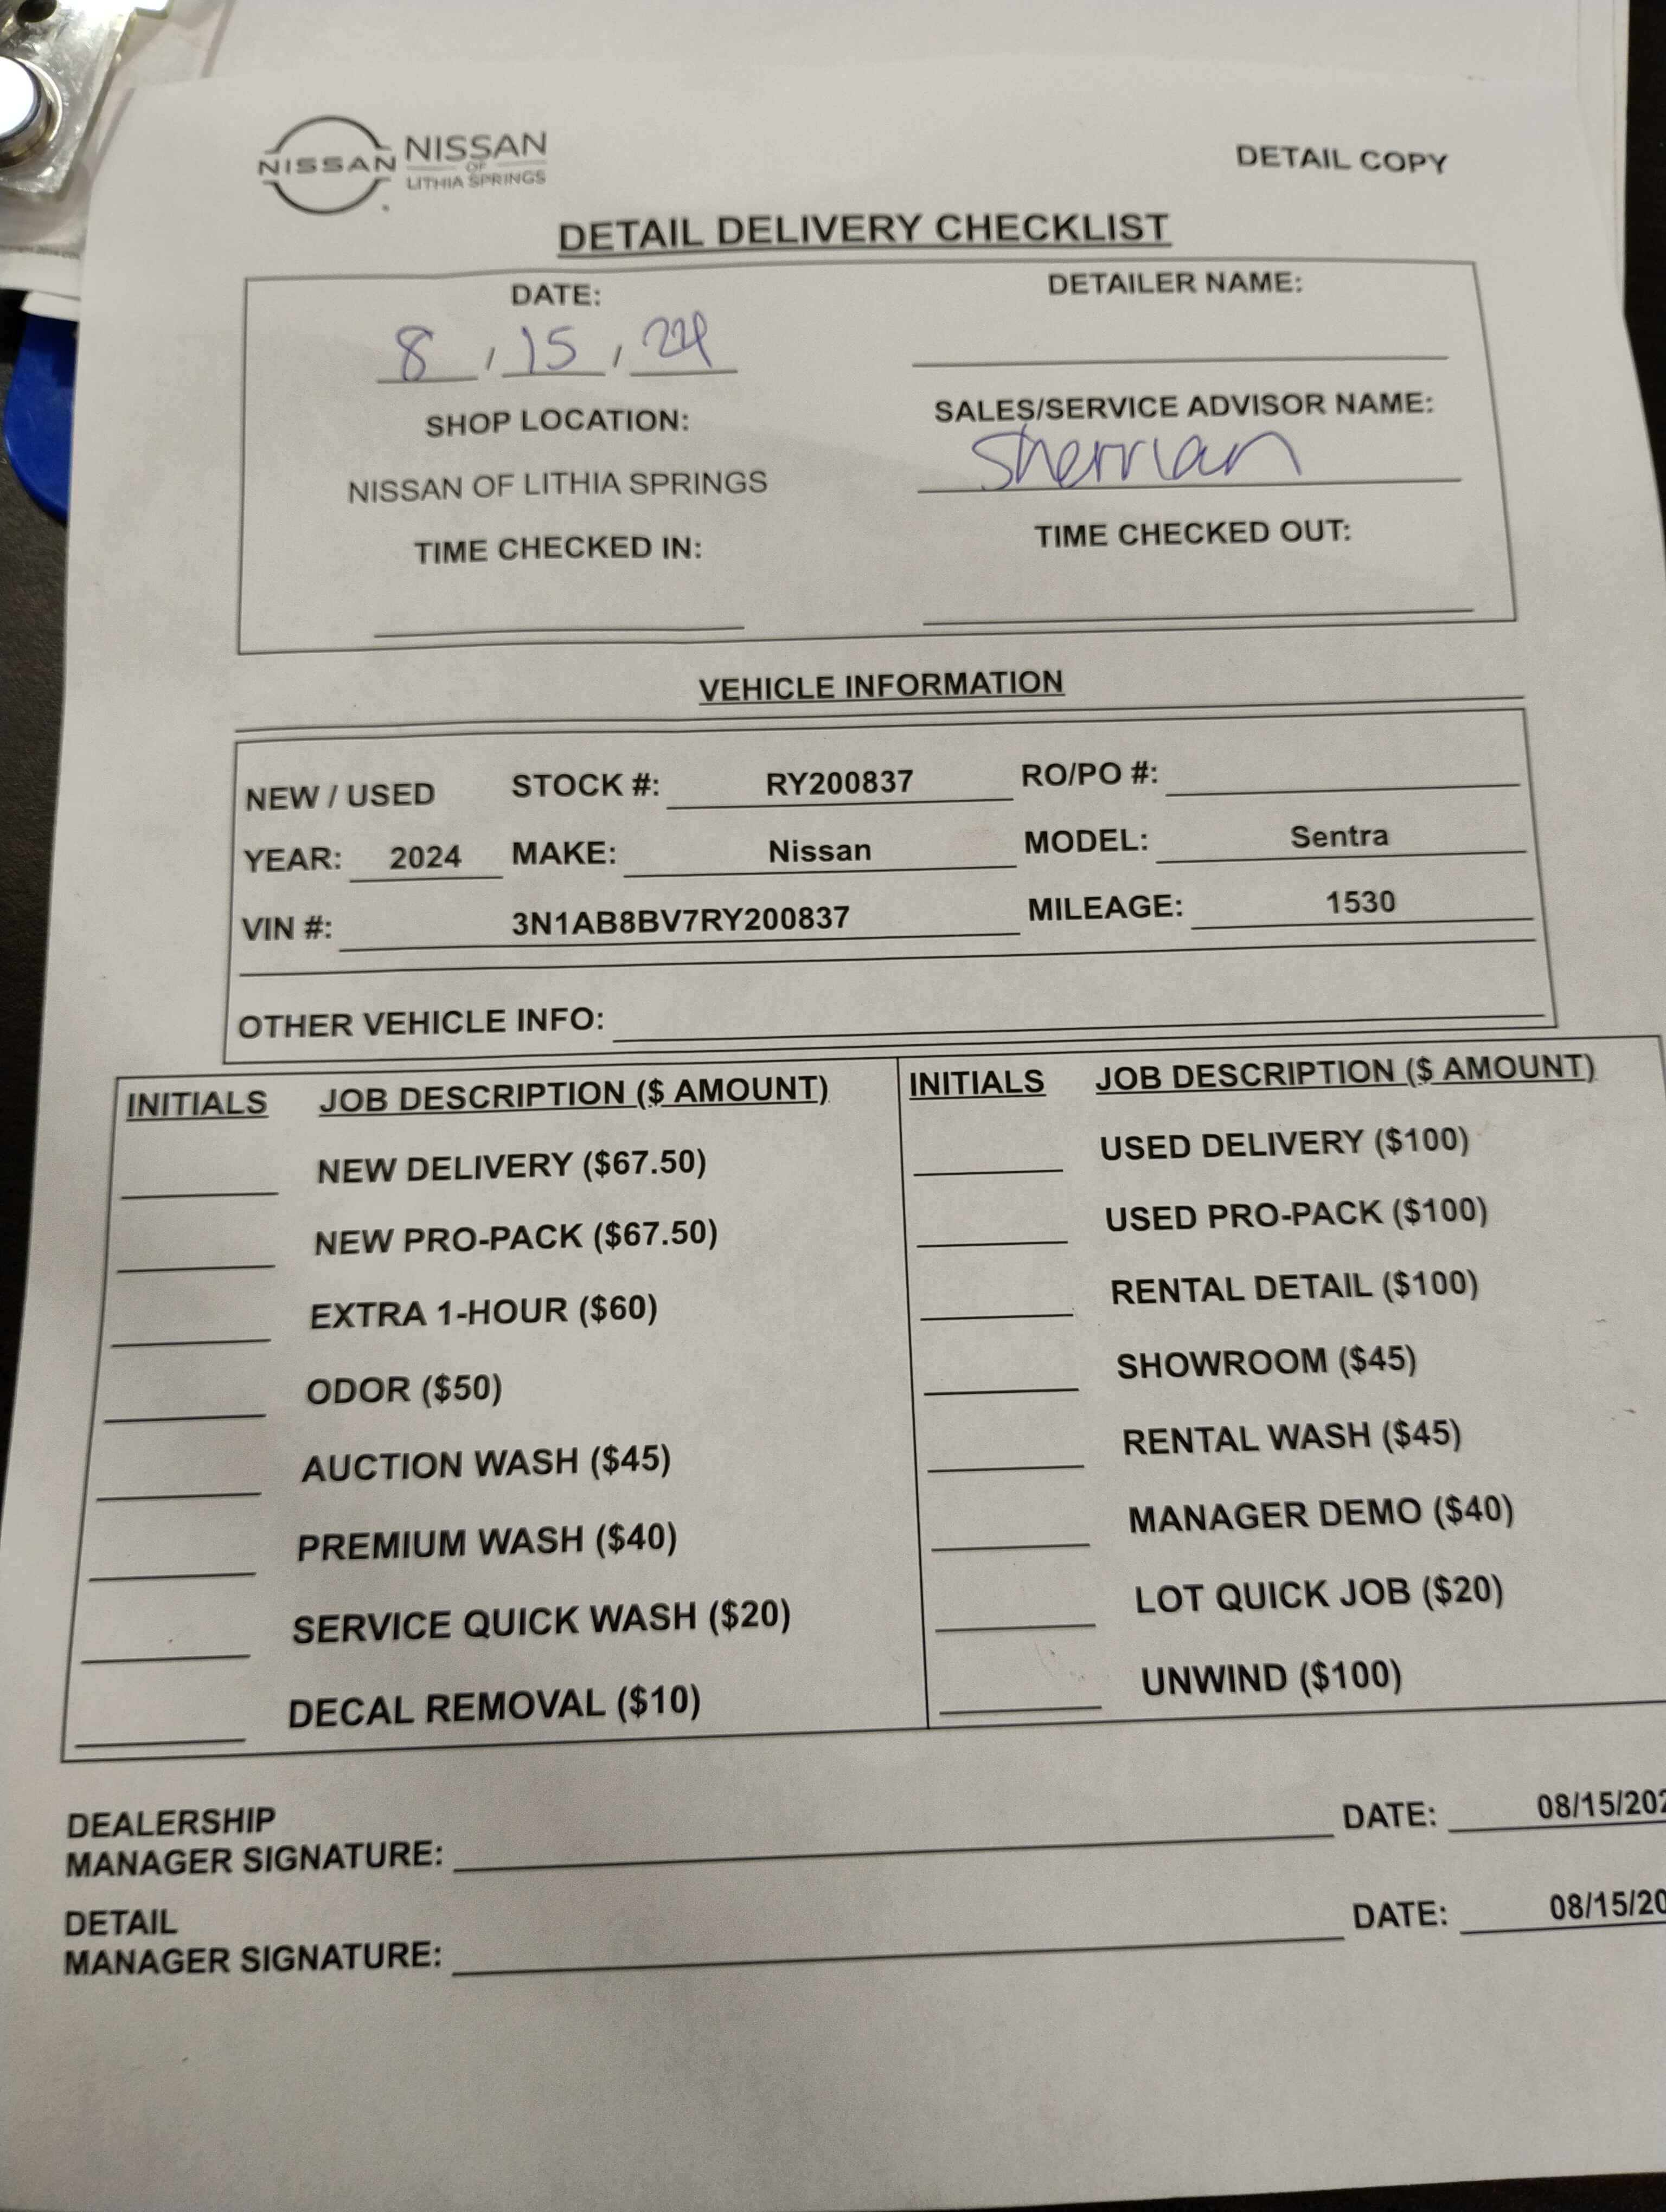 NISSAN NISSAN
OF
LITHIA SPRINGS
DETAIL COPY
DETAIL DELIVERY CHECKLIST
DATE: DETAILER NAME:
8 , 15 , 24
SHOP LOCATION: SALES/SERVICE ADVISOR NAME:
NISSAN OF LITHIA SPRINGS Sherrian
TIME CHECKED IN: TIME CHECKED OUT:
VEHICLE INFORMATION
NEW / USED STOCK #: RY200837 RO/PO #:
YEAR: 2024 MAKE: Nissan MODEL: Sentra
VIN #: 3N1AB8BV7RY200837 MILEAGE: 1530
OTHER VEHICLE INFO:
INITIALS JOB DESCRIPTION ($ AMOUNT) INITIALS JOB DESCRIPTION ($ AMOUNT)
NEW DELIVERY ($67.50) USED DELIVERY ($100)
NEW PRO-PACK ($67.50) USED PRO-PACK ($100)
EXTRA 1-HOUR ($60) RENTAL DETAIL ($100)
ODOR ($50) SHOWROOM ($45)
AUCTION WASH ($45) RENTAL WASH ($45)
PREMIUM WASH ($40) MANAGER DEMO ($40)
SERVICE QUICK WASH ($20) LOT QUICK JOB ($20)
DECAL REMOVAL ($10) UNWIND ($100)
DEALERSHIP
MANAGER SIGNATURE: DATE: 08/15/202
DETAIL
MANAGER SIGNATURE: DATE: 08/15/20